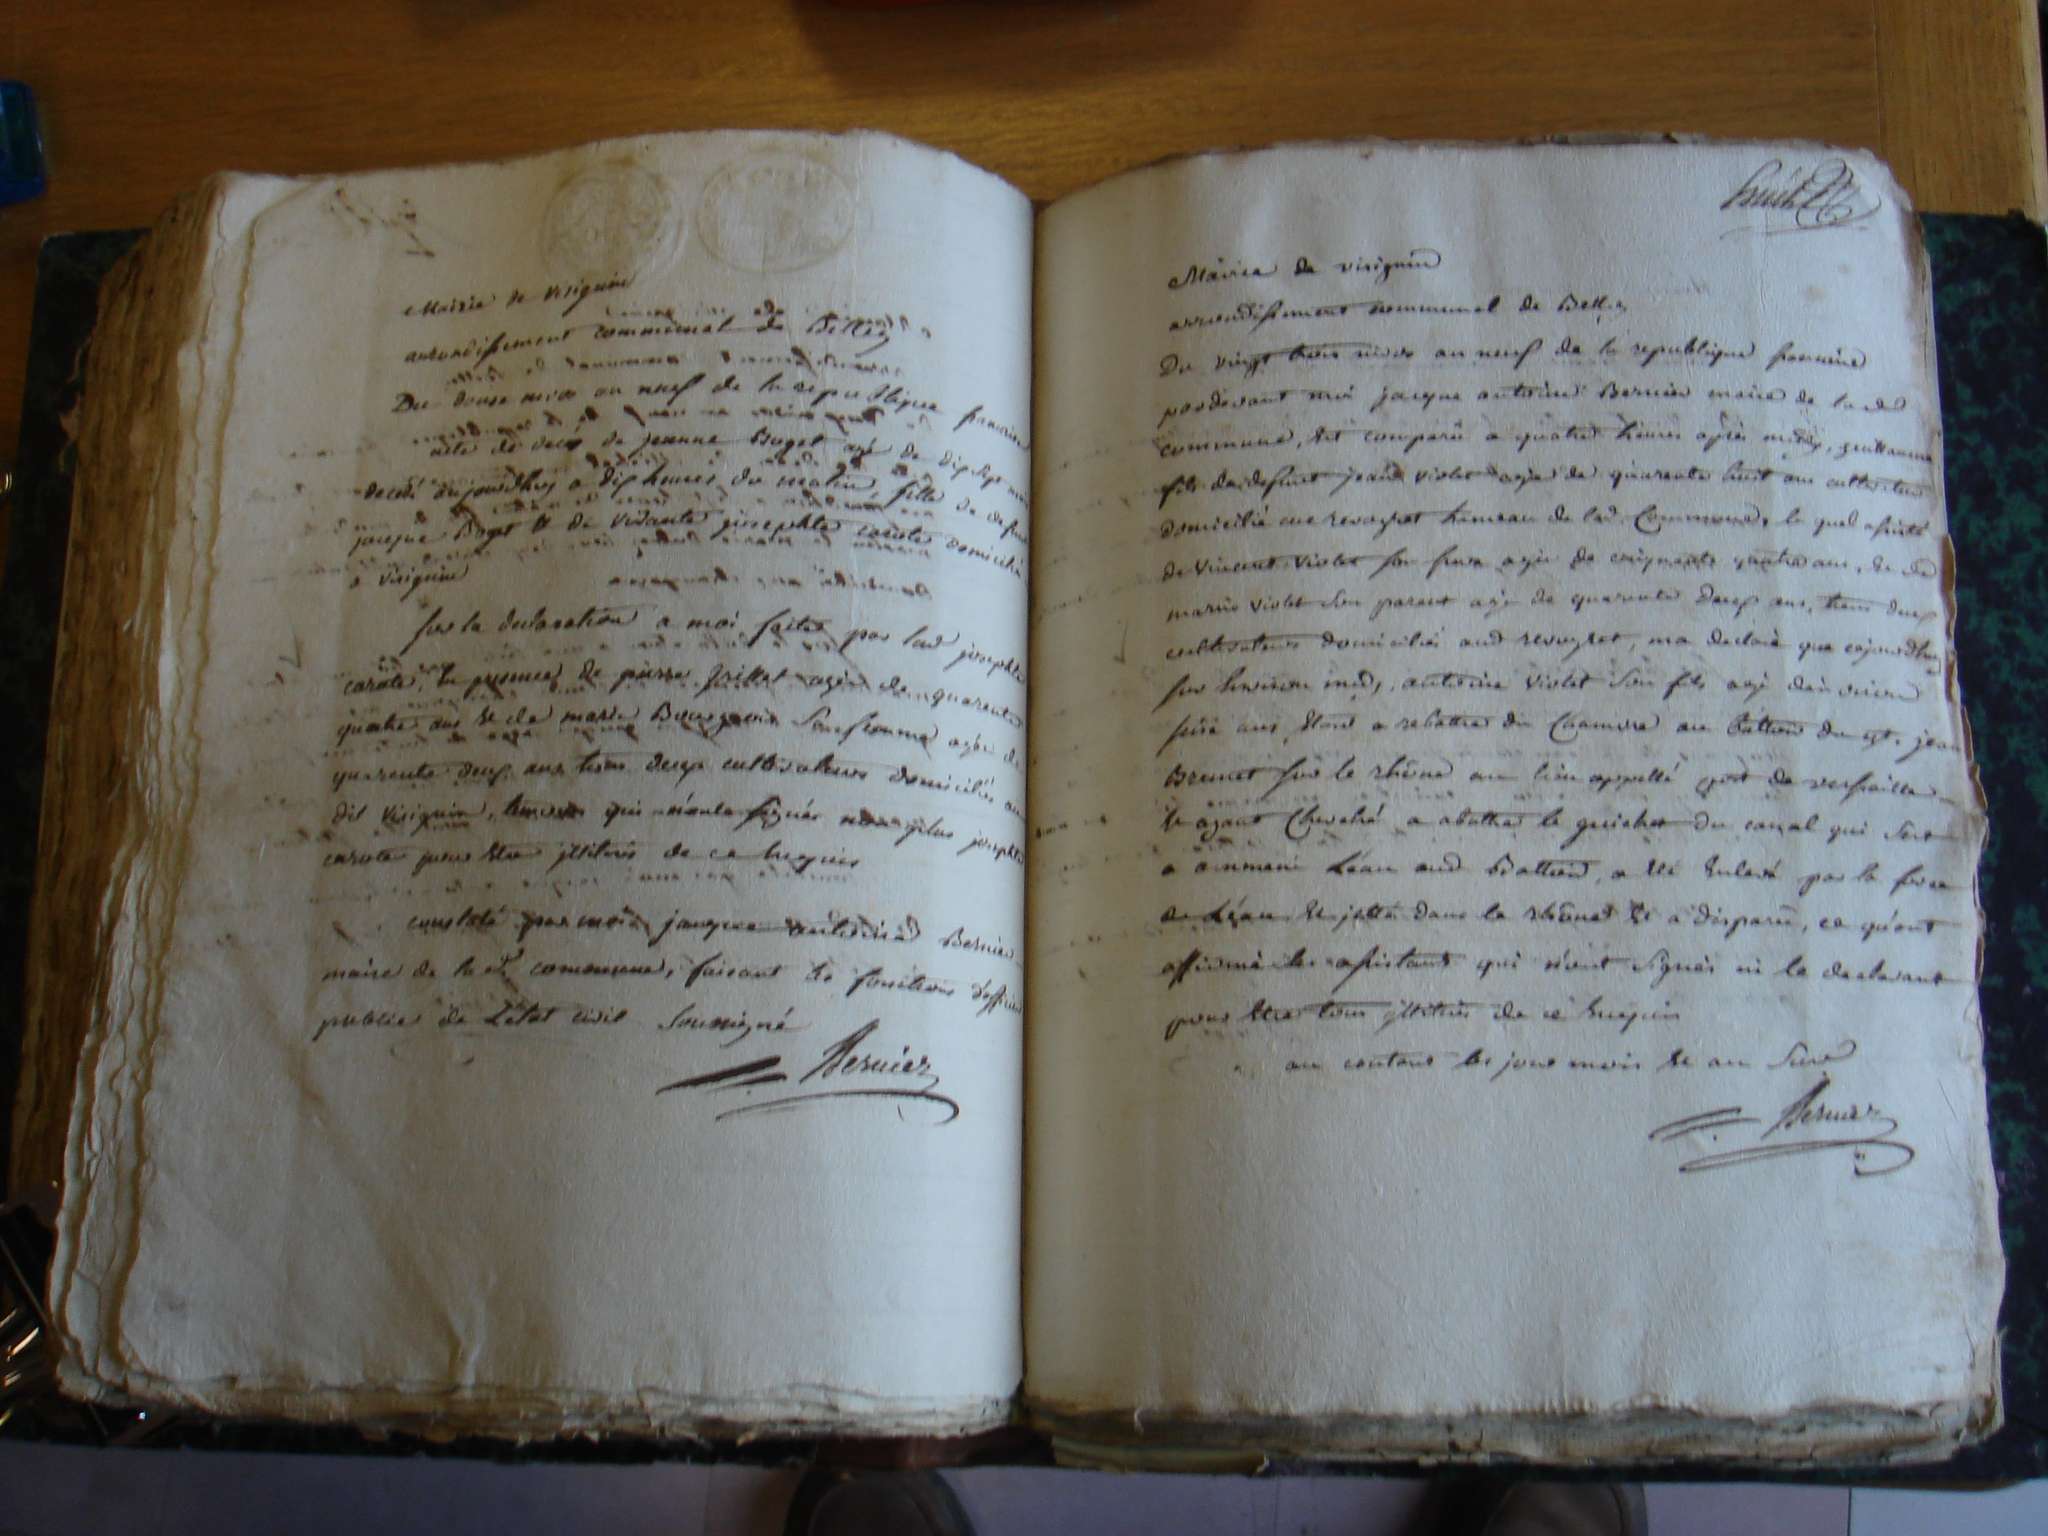 Mairie de Virignin
arrondissement communal de Belley
Du douze nivos an neuf de la republique francaise
acte de deces de jeanne Buget agé de dix sept mois
decedé aujourdhuy a dix heures du matin, fille de defunt
jacque Buget et de vivante josephte carote domicilié
a virignin
sur la declaration a moi faites par lad josephte
carote, en presence de pierre Grillet agé de quarente
quatre ans et de marie Bourgeois sa femme agée de
quarente deux ans tous deux cultivateurs domiciliés au
dit virignin, temoins qui n'ont signés non plus josephte
carote pour etre illitirés de ce enquis
constaté par moi jacque antoine Bernier
maire de la de commune, faisant les fonctions d'officier
public de L'état civil soussigné
Bernier
huit
Mairie de virignin
arrondissement communal de Belley
Du vingt trois nivos an neuf de la republique francaise
pardevant moi jacque antoine Bernier maire de la de
commune, est comparu a quatre heures après midy, guillaume
fils de defunt jean violet agé de quarente huit ans cultivateur
domicilié au revoyret hameau de lad. Commune, le quel assisté
de Vincent violet son frere agé de cinquante quatre ans, et de
marin violet son parent agé de quarente deux ans, tous deux
cultivateurs domiciliés aud revoyret, ma declaré que cejourdhuy
sur environ midy, antoine violet son fils agé d'environ
seize ans, etant a rebattre du Chanvre au battoir du st. jean
Brunet sur le rhône au lieu appellé port de
et ayant Cherché a abattre le guichet du canal qui sert
a ammene L'eau aud Battoir, a eté Enlevé par la force
de L'eau et jetté dans le rhône et a disparu, ce qu'ont
affirmé les assistants qui n'ont signés ni le declarant
pour etre tous illitirés de ce Enquis
au contant les jour mois et an susd
Bernier